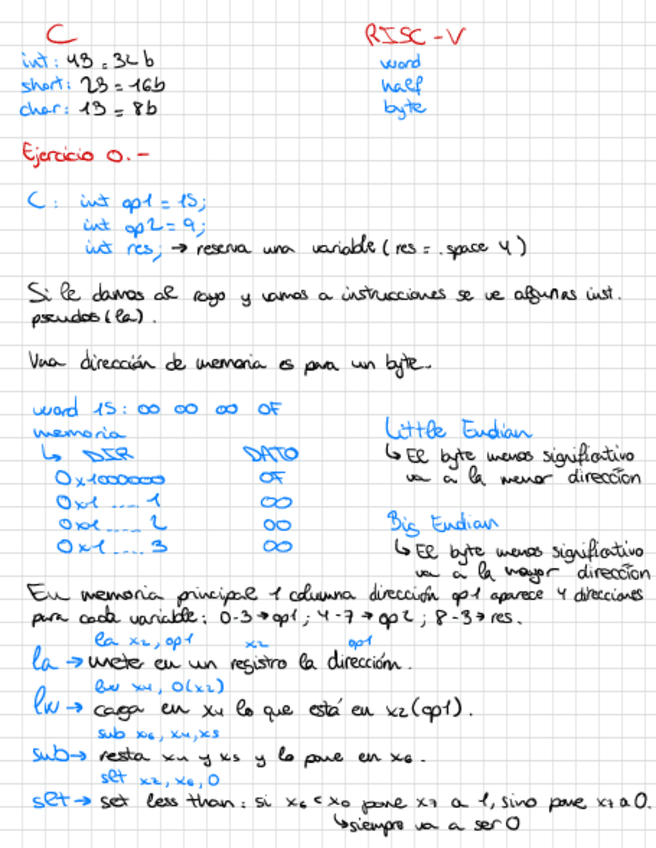 C RISC-V
int: 4B = 32b word
short: 2B = 16b half
char: 1B = 8b byte
Ejercicio 0.-
C: int op1 = 15;
int op2 = 9;
int res; → reserva una variable (res = .space 4)
Si le damos al rayo y vamos a instrucciones se ve algunas inst.
pseudos (la).
Una dirección de memoria es para un byte.
word 15: 00 00 00 0F
memoria
↳ DIR DATO
0x1000000 0F
0x1 .... 1 00
0x1 .... 2 00
0x1 .... 3 00
Little Endian
↳ El byte menos significativo
va a la menor dirección
Big Endian
↳ El byte menos significativo
va a la mayor dirección
En memoria principal 1 columna dirección op1 aparece 4 direcciones
para cada variable: 0-3→op1; 4-7→op2; 8-3→res.
la x2, op1 x2 op1
la → mete en un registro la dirección.
lw x4, 0(x2)
lw → caga en x4 lo que está en x2 (op1).
sub x6, x4, x5
sub → resta x4 y x5 y lo pone en x6.
slt x2, x6, 0
slt → set less than: si x6 < x0 pone x7 a 1, sino pone x7 a 0.
↳ siempre va a ser 0